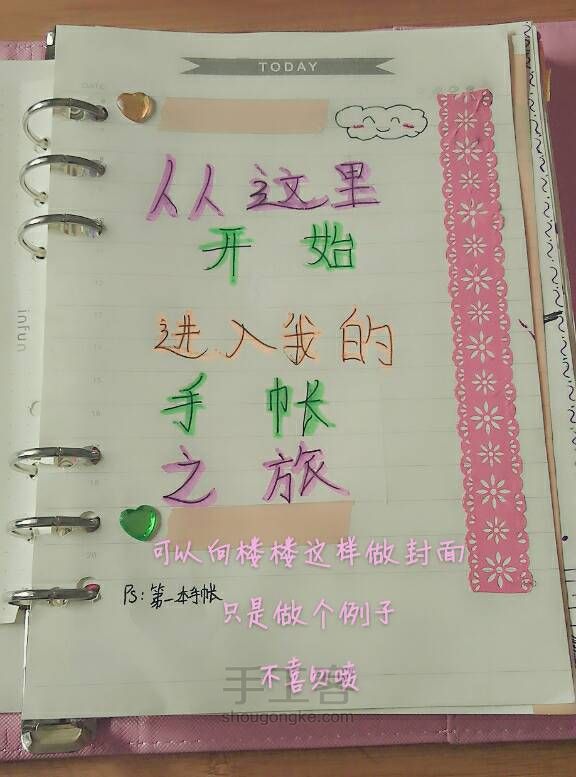 TODAY
从这里
开始
进入我的
手帐
之旅
可以向楼楼这样做封面
Ps:第一本手帐
只是做个例子
不喜勿喷
手工客
shougongke.com
infun